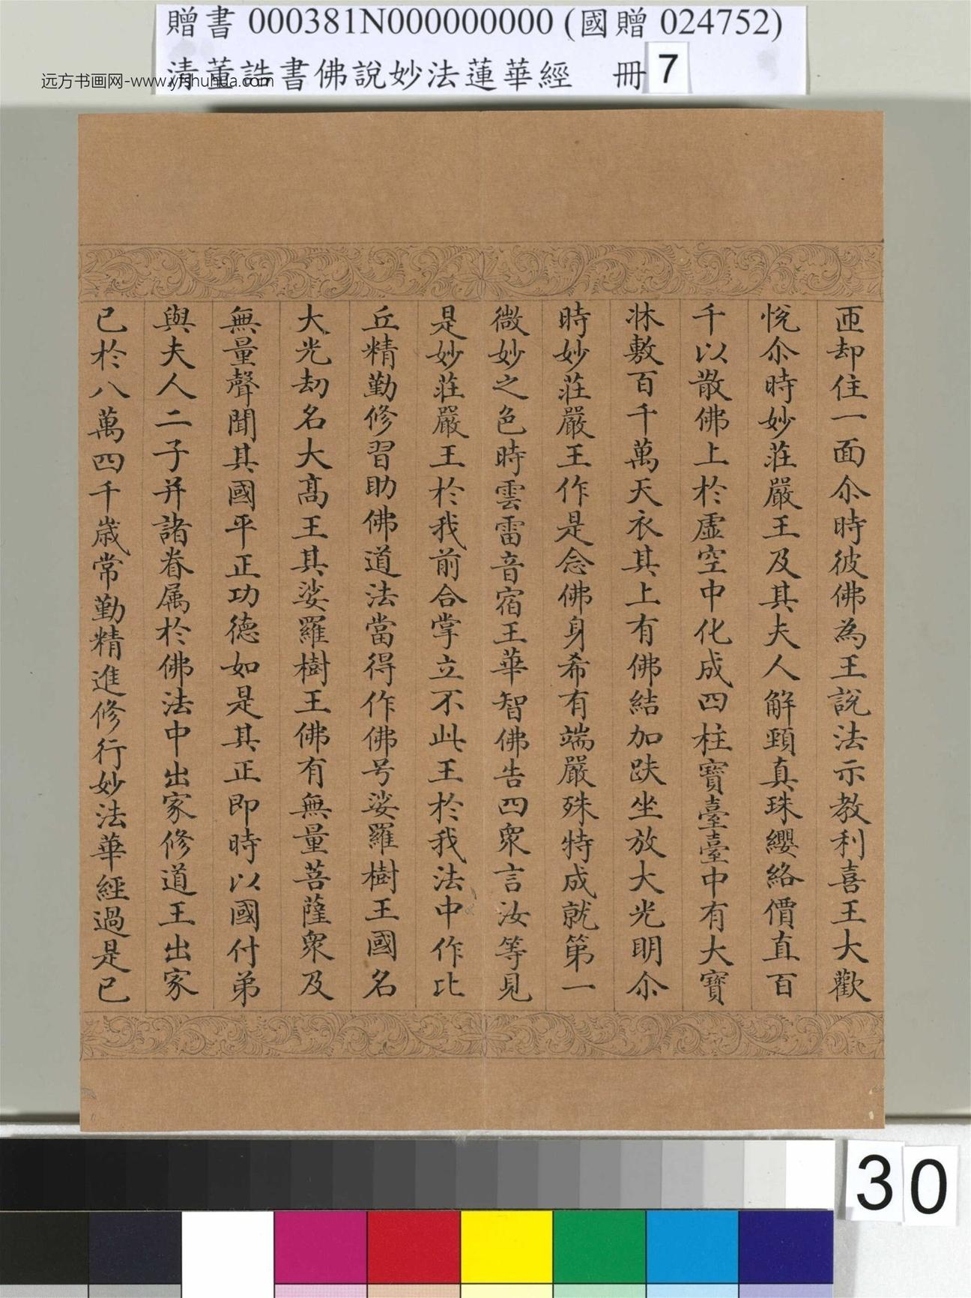 贈書 000381N000000000 (國贈 024752)
清董誥書佛說妙法蓮華經 冊 7
远方书画网-www.yfshuhua.com
匝却住一面尒時彼佛為王說法示教利喜王大歡
悅尒時妙莊嚴王及其夫人解頸真珠纓絡價直百
千以散佛上於虛空中化成四柱寶臺臺中有大寶
牀敷百千萬天衣其上有佛結加趺坐放大光明尒
時妙莊嚴王作是念佛身希有端嚴殊特成就第一
微妙之色時雲雷音宿王華智佛告四衆言汝等見
是妙莊嚴王於我前合掌立不此王於我法中作比
丘精勤修習助佛道法當得作佛号娑羅樹王國名
大光劫名大高王其娑羅樹王佛有無量菩薩衆及
無量聲聞其國平正功德如是其正即時以國付弟
與夫人二子并諸眷属於佛法中出家修道王出家
已於八萬四千歲常勤精進修行妙法華經過是已
30